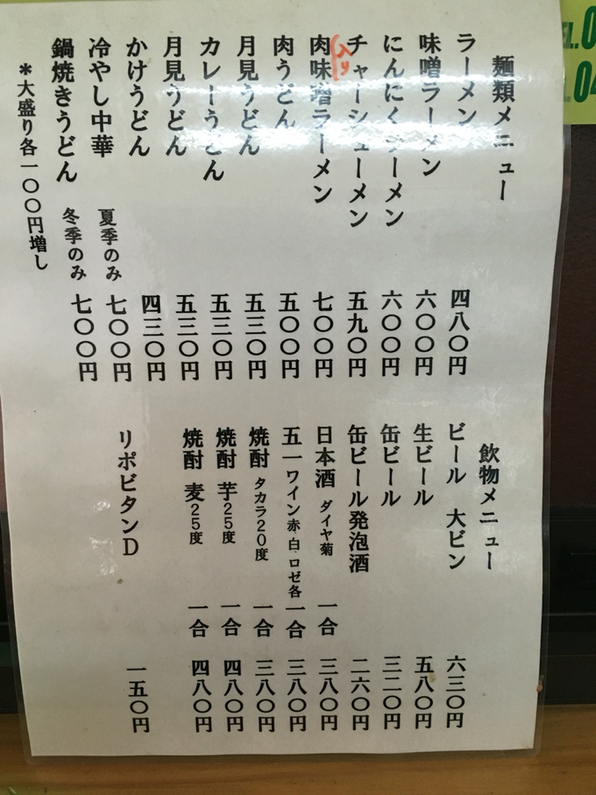 麺類メニュー
ラーメン 四八〇円
味噌ラーメン 六〇〇円
にんにくラーメン 六〇〇円
チャーシューメン 五九〇円
肉味噌ラーメン 七〇〇円
肉うどん 五〇〇円
月見うどん 五三〇円
カレーうどん 五三〇円
月見うどん 五三〇円
かけうどん 四三〇円
冷やし中華 夏季のみ 七〇〇円
鍋焼きうどん 冬季のみ 七〇〇円
*大盛り各一〇〇円増し
飲物メニュー
ビール 大ビン 六三〇円
生ビール 五八〇円
缶ビール 三二〇円
缶ビール発泡酒 二六〇円
日本酒 ダイヤ菊 一合 三八〇円
五一ワイン赤・白・ロゼ各 一合 三八〇円
焼酎 タカラ20度 一合 三八〇円
焼酎 芋25度 一合 四八〇円
焼酎 麦25度 一合 四八〇円
リポビタンD 一五〇円